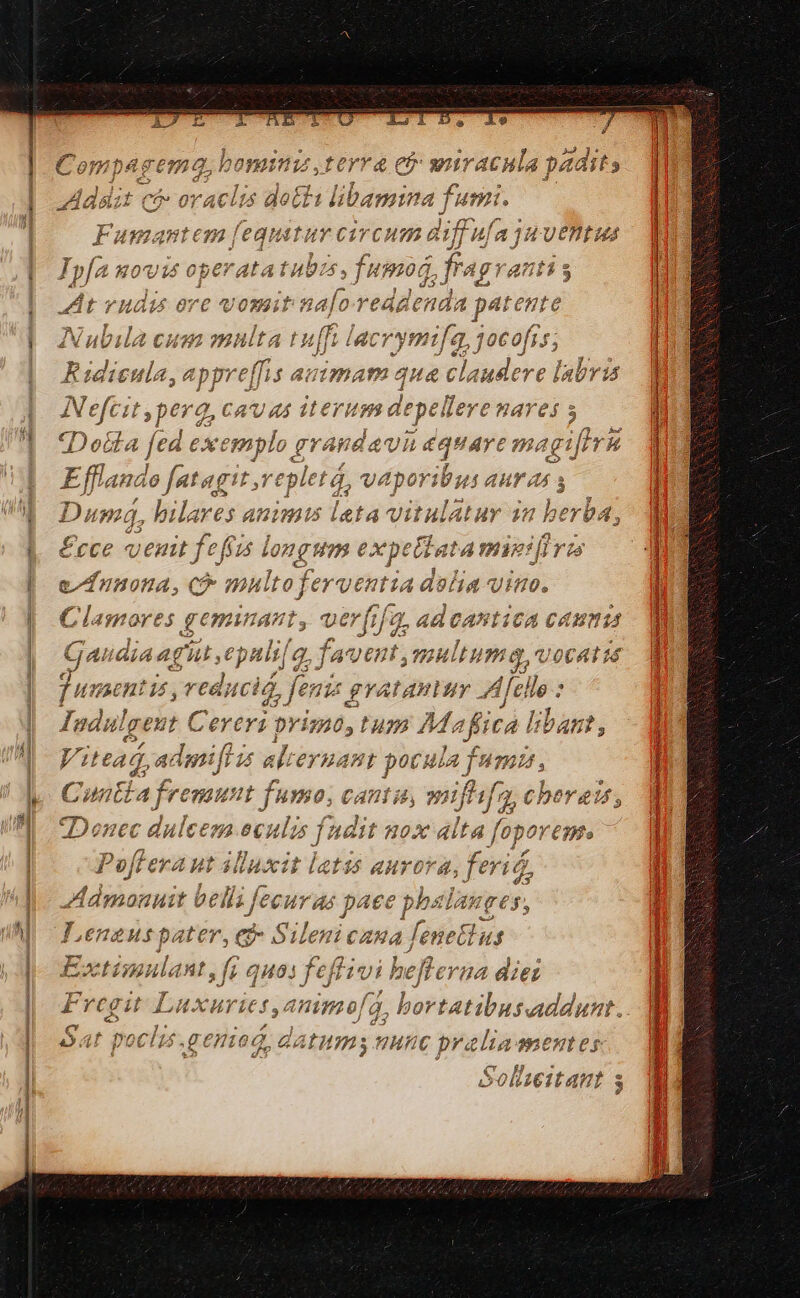 DE PAETO LIB. I. 7
Compagemq; hominis, terræ & miracula pādit,
Addit & oraclis docti libamina fumi.
Fumantem ſequitur circum diffuſa juventus
Ipſa novis operata tubis, fumoq; fragranti;
At rudis ore vomit naſo reddenda patente
Nubila cum multa tuſſi lacrymiſq; jocoſis;
Ridicula, appreſſis animam quæ claudere labris
Neſcit, perq; cavas iterum depellere nares;
Docta ſed exemplo grandævû æquare magiſtrū
Efflando ſatagit, repletq; vaporibus auras;
Dumq; hilares animis læta vitulātur in herba,
Ecce venit feſſis longum expectata miniſtris
Annona, & multo ferventia dolia vino.
Clamores geminant, verſiſq; ad cantica cannis
Gaudia agūt, epuliſq; favent, multumq; vocatis
Jumentis, reducīq; ſenis gratantur Aſello:
Indulgent Cereri primo, tum Maſſica libant,
Viteaq; admiſtis alternant pocula fumis,
Cuncta fremunt fumo, cantu, miſtiſq; choreis,
Donec dulcem oculis fudit nox alta ſoporem.
Poſtera ut illuxit lætis aurora, feriq;
Admonuit belli ſecuras pace phalanges,
Lenæus pater, & Sileni cana ſenectus
Extimulant, ſi quos feſtivi heſterna diei
Fregit Luxuries, animoſq; hortatibus addunt.
Sat poclis.genioq; datum; nunc prælia mentes
Sollicitant;